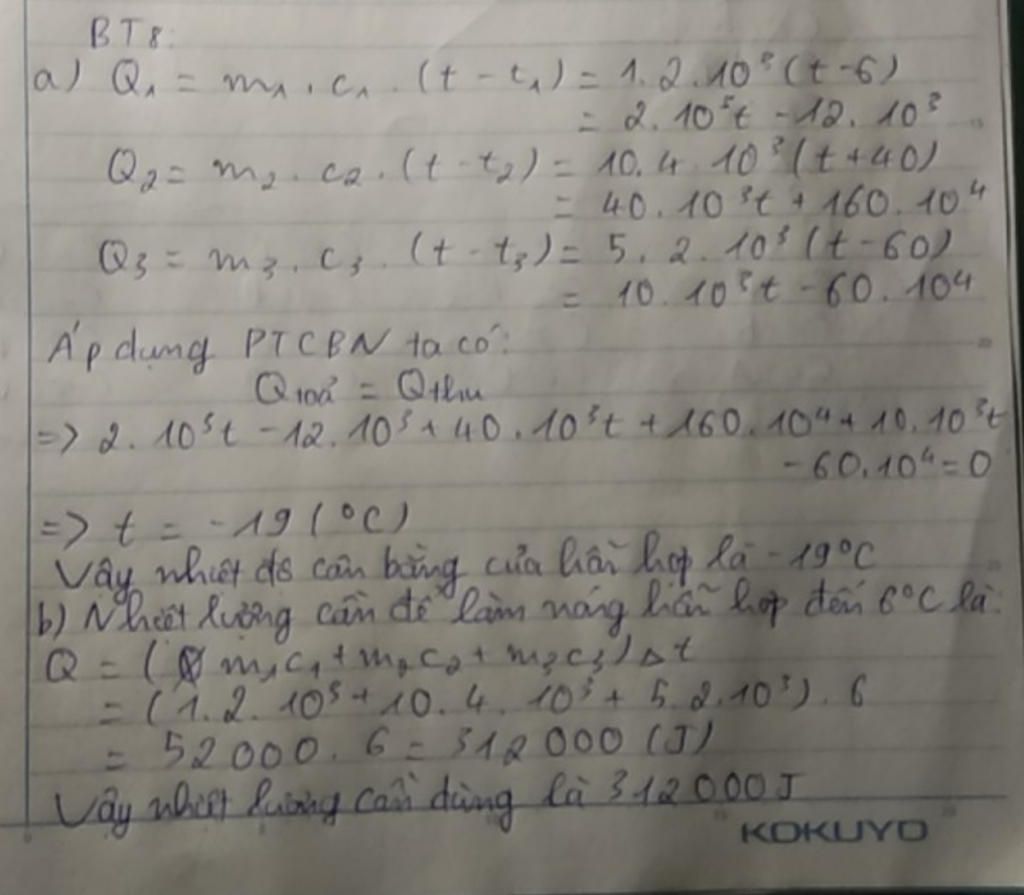 BT8:
a) Q₁ = m₁.c₁.(t - t₁) = 1.2.10³(t-6)
= 2.10³t - 12.10³
Q₂ = m₂.c₂.(t - t₂) = 10.4.10³(t+40)
= 40.10³t + 160.10⁴
Q₃ = m₃.c₃.(t - t₃) = 5.2.10³(t-60)
= 10.10³t - 60.10⁴
Áp dụng PTCBN ta có:
Qtoả = Qthu
=> 2.10³t - 12.10³ + 40.10³t + 160.10⁴ + 10.10³t
- 60.10⁴ = 0
=> t = -19 (°C)
Vậy nhiệt độ cân bằng của hỗn hợp là -19°C
b) Nhiệt lượng cần để làm nóng hỗn hợp đến 6°C là:
Q = (m₁c₁ + m₂c₂ + m₃c₃)Δt
= (1.2.10³ + 10.4.10³ + 5.2.10³).6
= 52000.6 = 312000 (J)
Vậy nhiệt lượng cần dùng là 312000J
KOKUYO